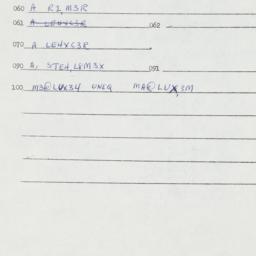 060 A RI,M3R
061 A LEHXC3R 062
070 A LEHXC3R
090 A, STEH,L8M3X 091
100 M3@LUX34 UNEQ MA@LUX,3M